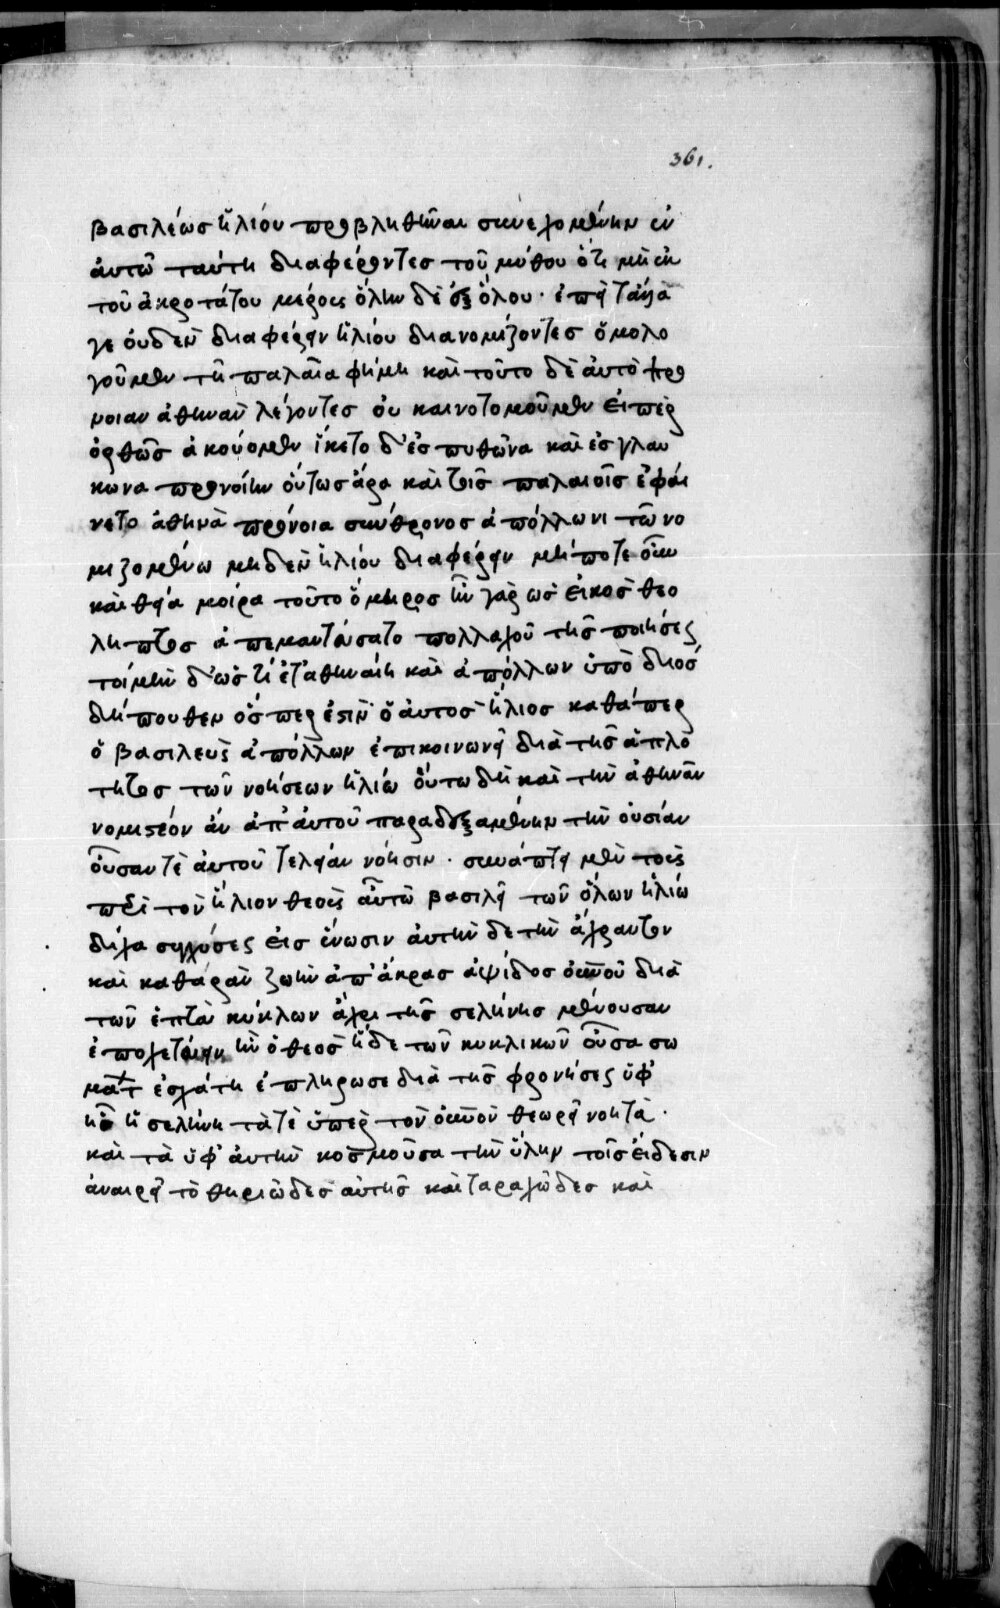 361.
βασιλέως ἡλίου προβληθῆναι συνεχομένην ἐν
ἀυτῶ ταύτη διαφέροντες τοῦ μύθου ὅτι μὴ ἐκ
τοῦ ἀκροτάτου μέρους ὅλην δὲ ἐξ ὅλου· ἐπεὶ τἄλλά
γε ὀυδὲν διαφέρειν ἡλίου δία νομίζοντες ὁμολο
γοῦμεν τῆ παλαιᾶ φήμη καὶ τοῦτο δὲ ἀυτὸ προ
νοιαν ἀθηνᾶν λέγοντες ὀυ καινοτομοῦμεν ἐιπὲρ
ὀρθῶς ἀκούομεν ἵκετο δ' ἐς πυθῶνα καὶ ἐς γλαυ
κωνα προνοίην ὁύτως ἄρα καὶ τοῖς παλαιοῖς ἐφάι
νετο ἀθηνᾶ πρόνοια σύνθρονος ἀπόλλωνι τῶ νο
μιζομένω μηδὲν ἡλίου διαφέρειν μήποτε οὖν
καὶ θεία μοίρα τοῦτο ὅμηρος ἦν γὰρ ὡς ἐικὸς θεο
ληπτος ἀπεμαντεύσατο πολλαχοῦ τῆς ποιήσεως
τοίμην δ' ὡς τίετ' ἀθηναίη καὶ ἀπόλλων ὑπὸ διός
δήπουθεν ὅσπερ ἐστὶν ὁ ἀυτὸς ἥλιος καθάπερ
ὁ βασιλεὺς ἀπόλλων ἐπικοινωνεῖ διὰ τῆς ἁπλό
τητος τῶν νοήσεων ἡλίω ὅυτω δὴ καὶ τὴν ἀθηνᾶν
νομιστέον ἀν ἀπ' ἀυτοῦ παραδεξαμένην τὴν ὀυσίαν
ὀῦσαν τὲ ἀυτοῦ τελείαν νόησιν· συνάπτει μὲν τοὺς
περὶ τὸν ἥλιον θεοὺς ἀυτῶ βασιλεῖ τῶν ὅλων ἡλίω
δίχα συγχύσεως ἐις ἕνωσιν ἀυτὴν δε τὴν ἄχραντον
καὶ καθαρὰν ζωὴν ἀπ' ἄκρας ἁψίδος οὐνοῦ διὰ
τῶν ἑπτὰ κύκλων ἄχρι τῆς σελήνης μένουσαν
ἐποχετεύειν ἣν ὁ θεὸς ἥδε τῶν κυκλικῶν ὀῦσα σω
μάτ ἐσχάτη ἐπλήρωσε διὰ τῆς φρονήσεως ὑφ'
ἧς ἡ σελήνη τὰ τὲ ὑπὲρ τὸν οὐνὸν θεωρεῖ νοητὰ·
καὶ τὰ ὑφ' ἀυτὴν κοσμοῦσα τὴν ὕλην τοῖς ἐίδεσιν
ἀναιρεῖ τὸ θηριῶδες ἀυτῆς καὶ ταραχῶδες καὶ